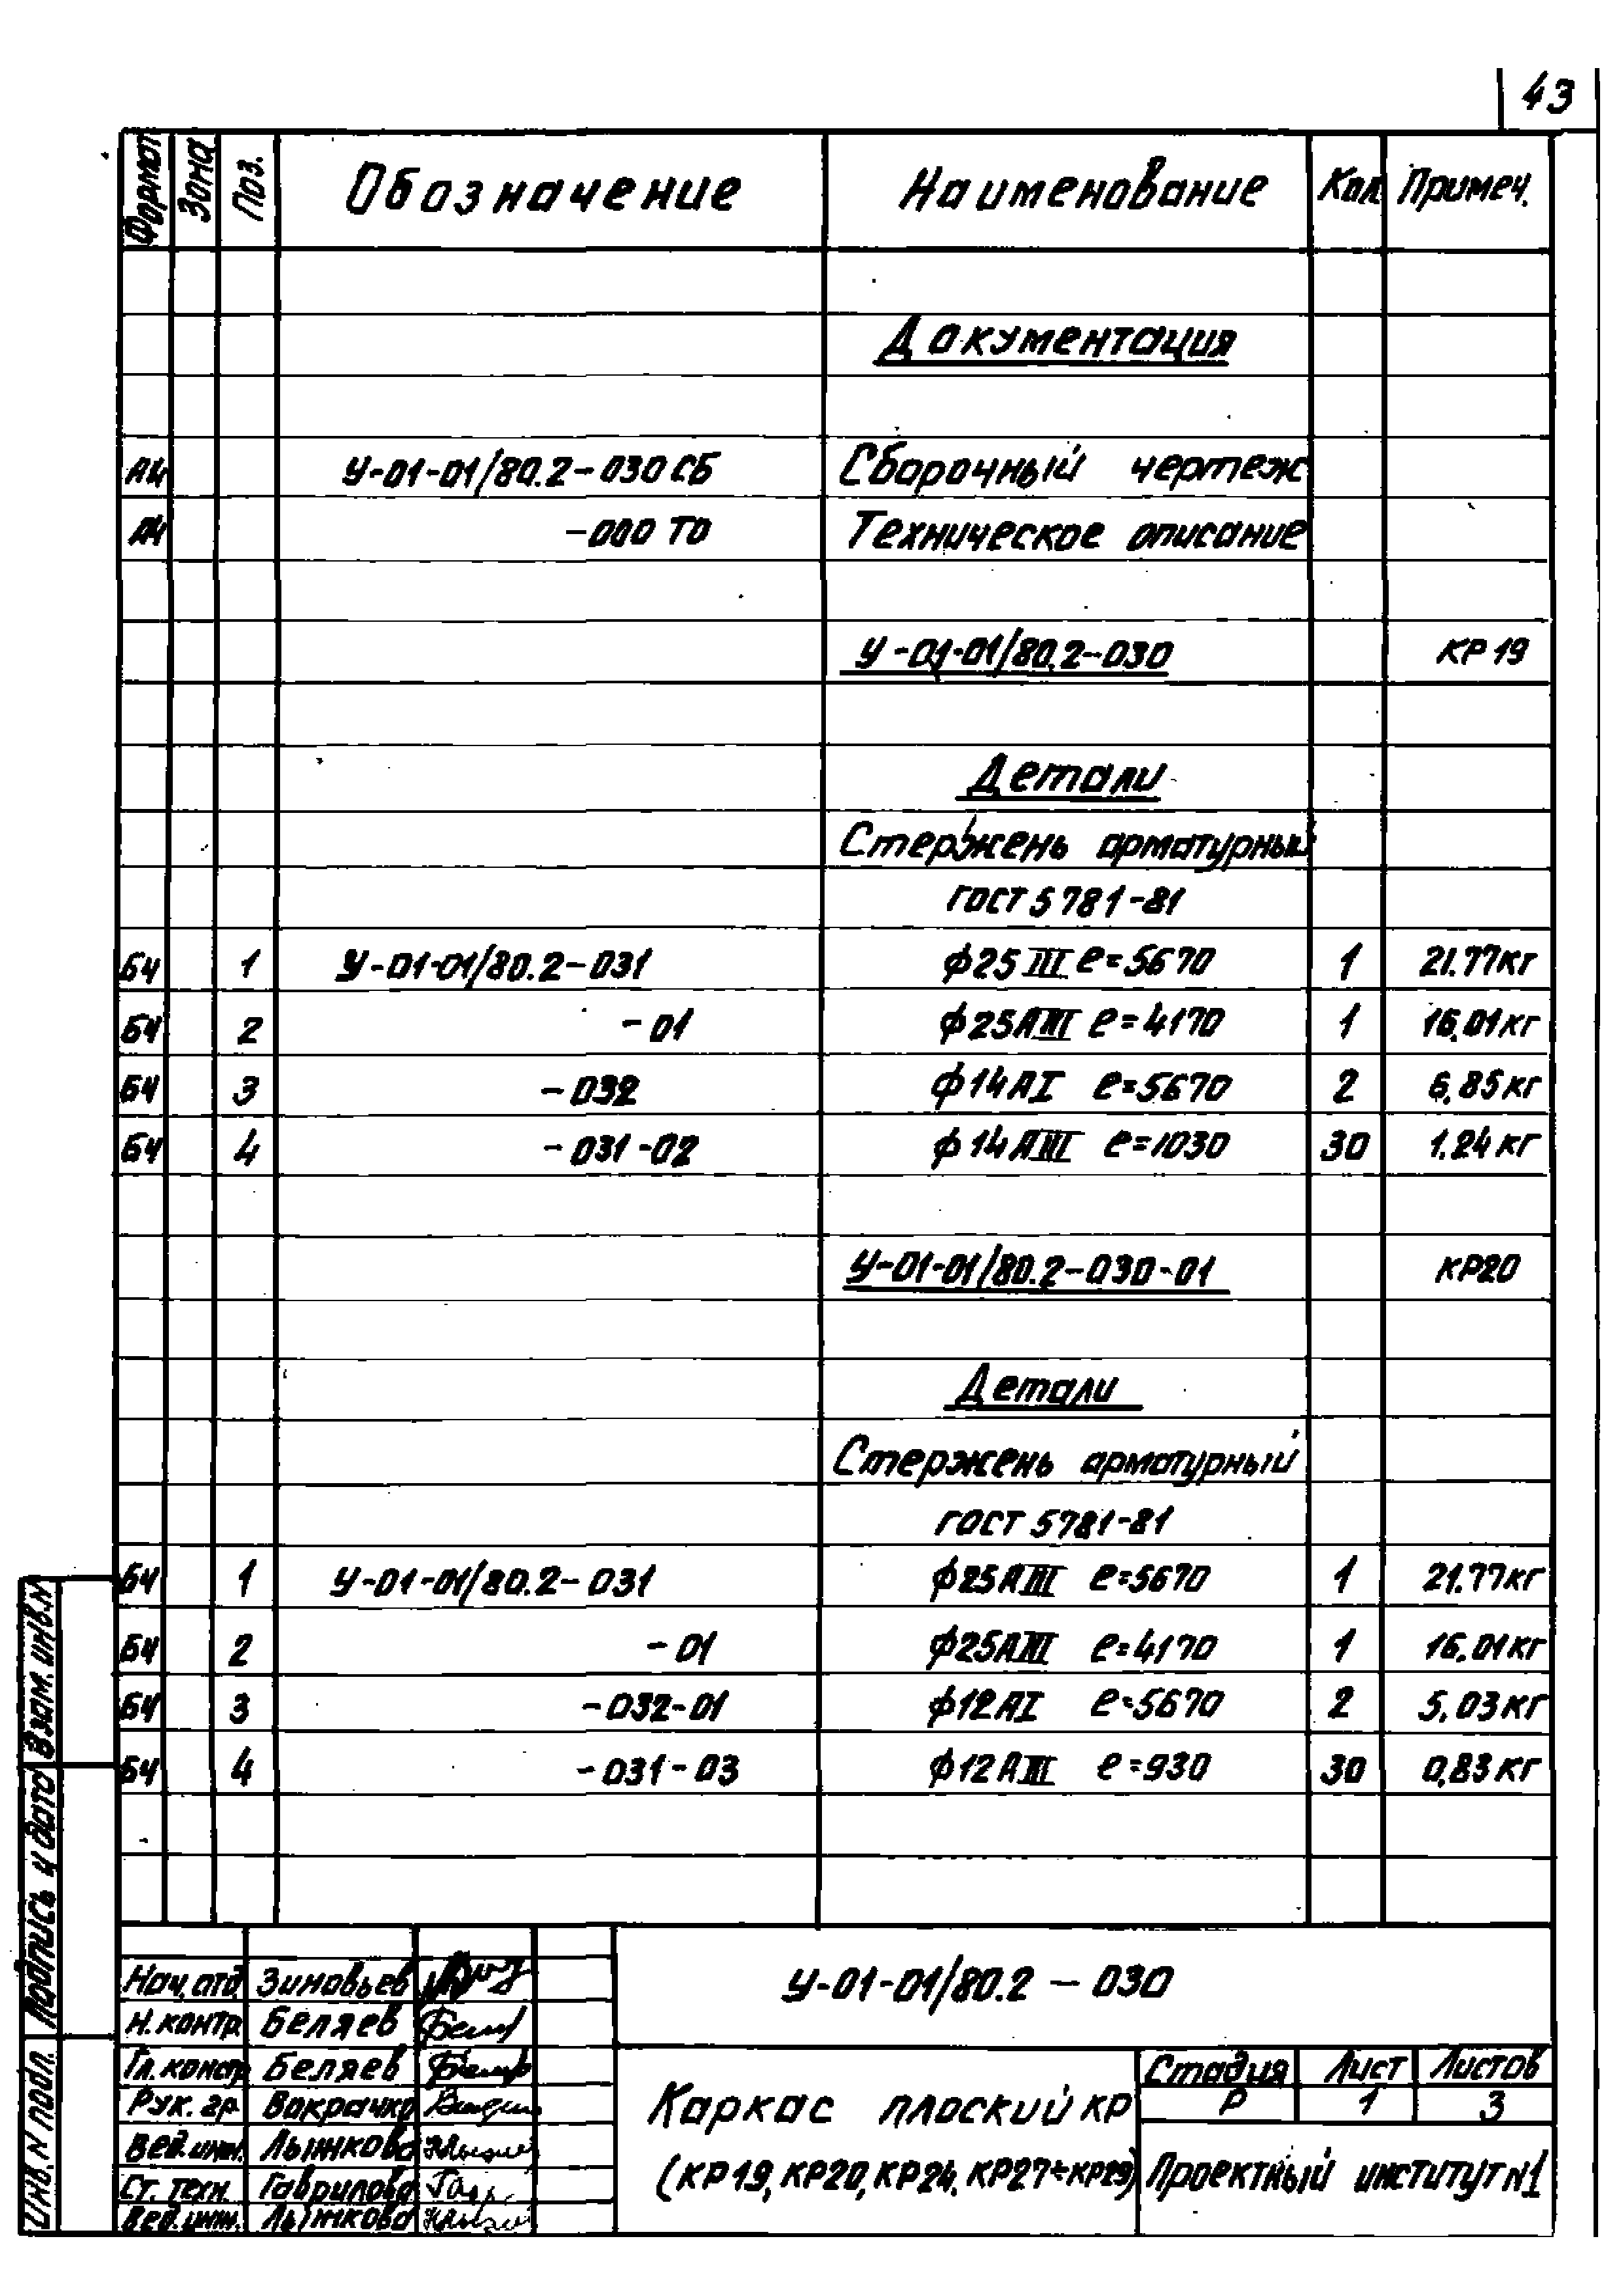 43
Формат Зона Поз. Обозначение Наименование Кол. Примеч.
Документация
А4 У-01-01/80.2-030 СБ Сборочный чертеж
А4 -000 ТО Техническое описание
У-01-01/80.2-030 КР 19
Детали
Стержень арматурный
ГОСТ 5781-81
БЧ 1 У-01-01/80.2-031 ф25 III ℓ=5670 1 21.77кг
БЧ 2 -01 ф25АIII ℓ=4170 1 16,01кг
БЧ 3 -032 ф14АI ℓ=5670 2 6,85кг
БЧ 4 -031-02 ф14АIII ℓ=1030 30 1.24кг
У-01-01/80.2-030-01 КР20
Детали
Стержень арматурный
ГОСТ 5781-81
БЧ 1 У-01-01/80.2-031 ф25АIII ℓ=5670 1 21.77кг
БЧ 2 -01 ф25АIII ℓ=4170 1 16.01кг
БЧ 3 -032-01 ф12АI ℓ=5670 2 5,03кг
БЧ 4 -031-03 ф12АIII ℓ=930 30 0,83кг
Взам. инв.N
Подпись и дата
Инв. N подл.
Нач. отд. Зиновьев
Н. контр. Беляев
Гл. констр. Беляев
Рук. гр. Вакрачко
Вед. инж. Лыжкова
Ст. техн. Гаврилова
Вед. инж. Лыжкова
У-01-01/80.2-030
Каркас плоский КР
(КР19, КР20, КР24, КР27÷КР29)
Стадия Лист Листов
Р 1 3
Проектный институт N1